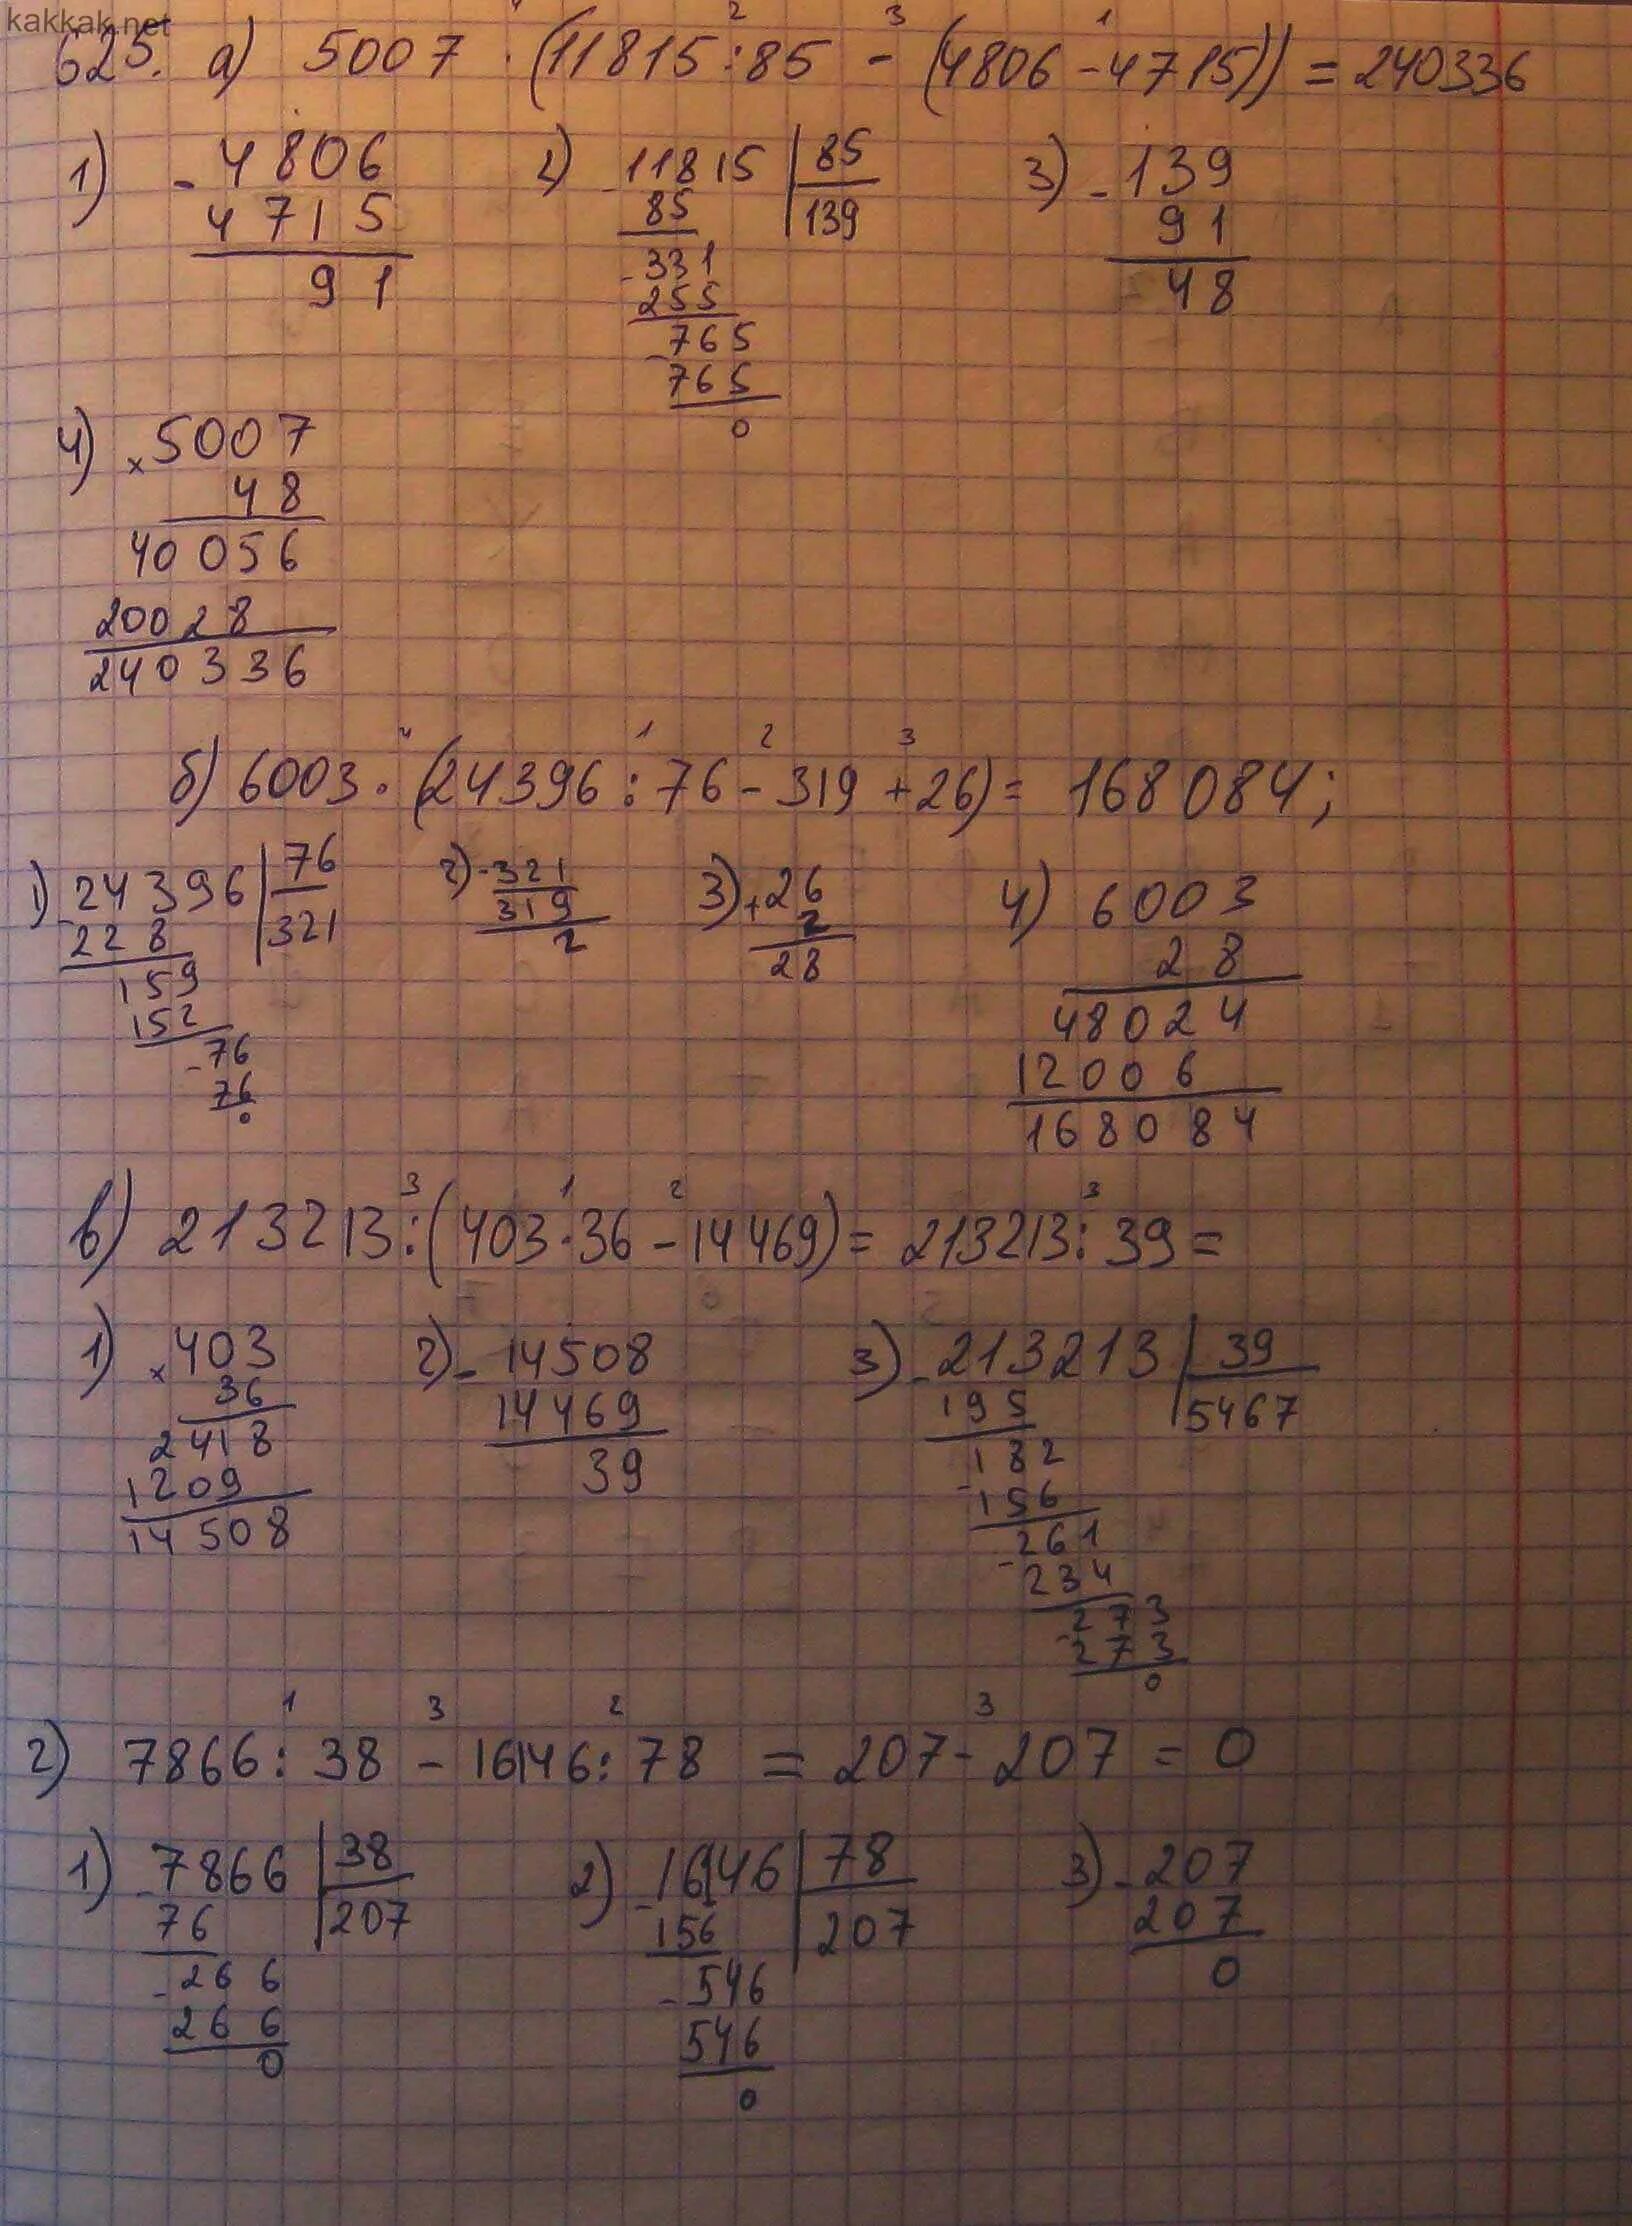 kakkak.net
625. а) 5007 · (11815 : 85 - (4806 - 4715)) = 240336
4 2 3 1
1) - 4806
4715
91
2) - 11815 | 85
85 | 139
- 331
255
- 765
765
0
3) - 139
91
48
4) × 5007
48
40056
20028
240336
4 1 2 3
б) 6003 · (24396 : 76 - 319 + 26) = 168084;
1) - 24396 | 76
228 | 321
159
152
- 76
76
0
2) - 321
319
2
3) + 26
2
28
4) 6003
28
48024
12006
168084
3 1 2 3
в) 213213 : (403 · 36 - 14469) = 213213 : 39 =
1) × 403
36
2418
1209
14508
2) - 14508
14469
39
3) - 213213 | 39
195 | 5467
- 182
156
- 261
234
- 273
273
0
1 3 2 3
г) 7866 : 38 - 16146 : 78 = 207 - 207 = 0
1) - 7866 | 38
76 | 207
- 266
266
0
2) - 16146 | 78
156 | 207
- 546
546
0
3) - 207
207
0